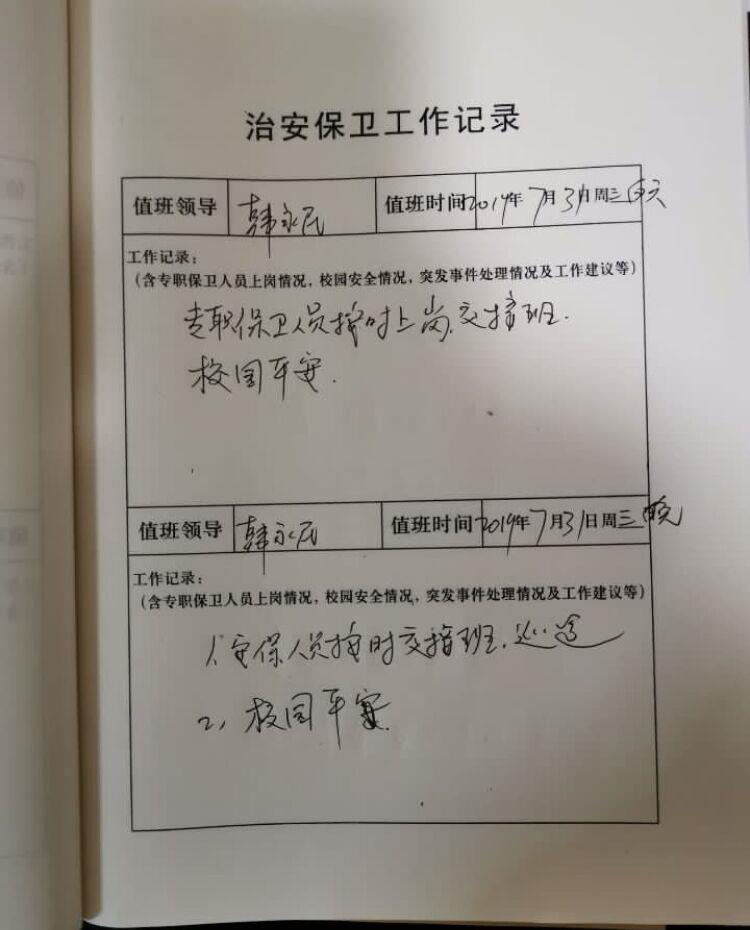 治安保卫工作记录
值班领导 韩永民 值班时间 2019年7月31日周三 白天
工作记录：
（含专职保卫人员上岗情况，校园安全情况，突发事件处理情况及工作建议等）
专职保卫人员按时上岗.交接班.
校园平安.
值班领导 韩永民 值班时间 2019年7月31日周三 晚
工作记录：
（含专职保卫人员上岗情况，校园安全情况，突发事件处理情况及工作建议等）
1、安保人员按时交接班.巡逻
2、校园平安.